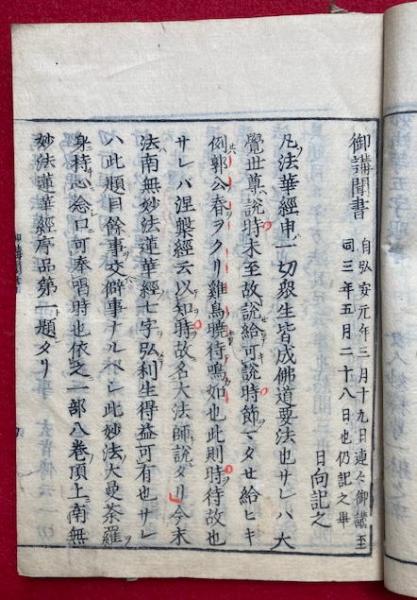 御講聞書
自弘安元年三月十九日連々御講至
同三年五月二十八日也仍記之畢
日向記之
凡法華經申一切衆生皆成佛道要法也サレハ大
覺世尊說時未至故說給可說時節マタセ給ヒキ
例郭公春ヲクリ雞鳥曉待鳴如也此則時待故也
サレハ涅槃經云以知時故名大法師說タリ今末
法南無妙法蓮華經七字弘利生得益可有也サレ
ハ此題目餘事交僻事ナルベシ此妙法大曼荼羅
身持心念口可奉唱時也依之一部八卷頂上南無
妙法蓮華經序品第一題タリ